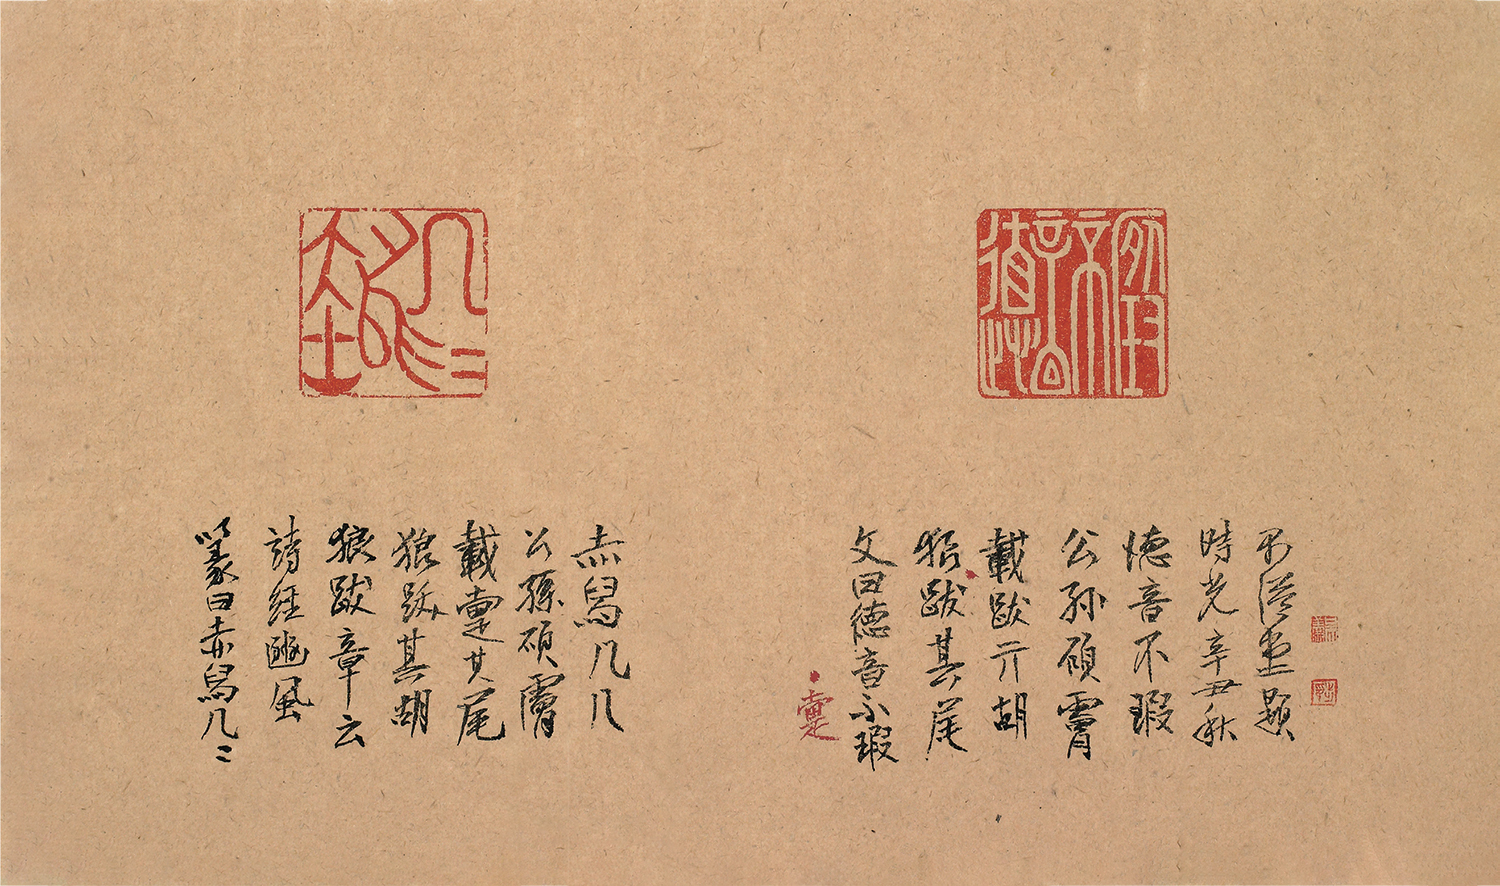 赤舄几=
篆曰赤舄几=
詩經豳風
狼跋章云
狼跋其胡
載疐其尾
公孫碩膚
赤舄几几
德音不瑕
疐
文曰德音不瑕
狼跋其尾
載跋亓胡
公孙碩膚
德音不瑕
時光辛丑秋
不堂題